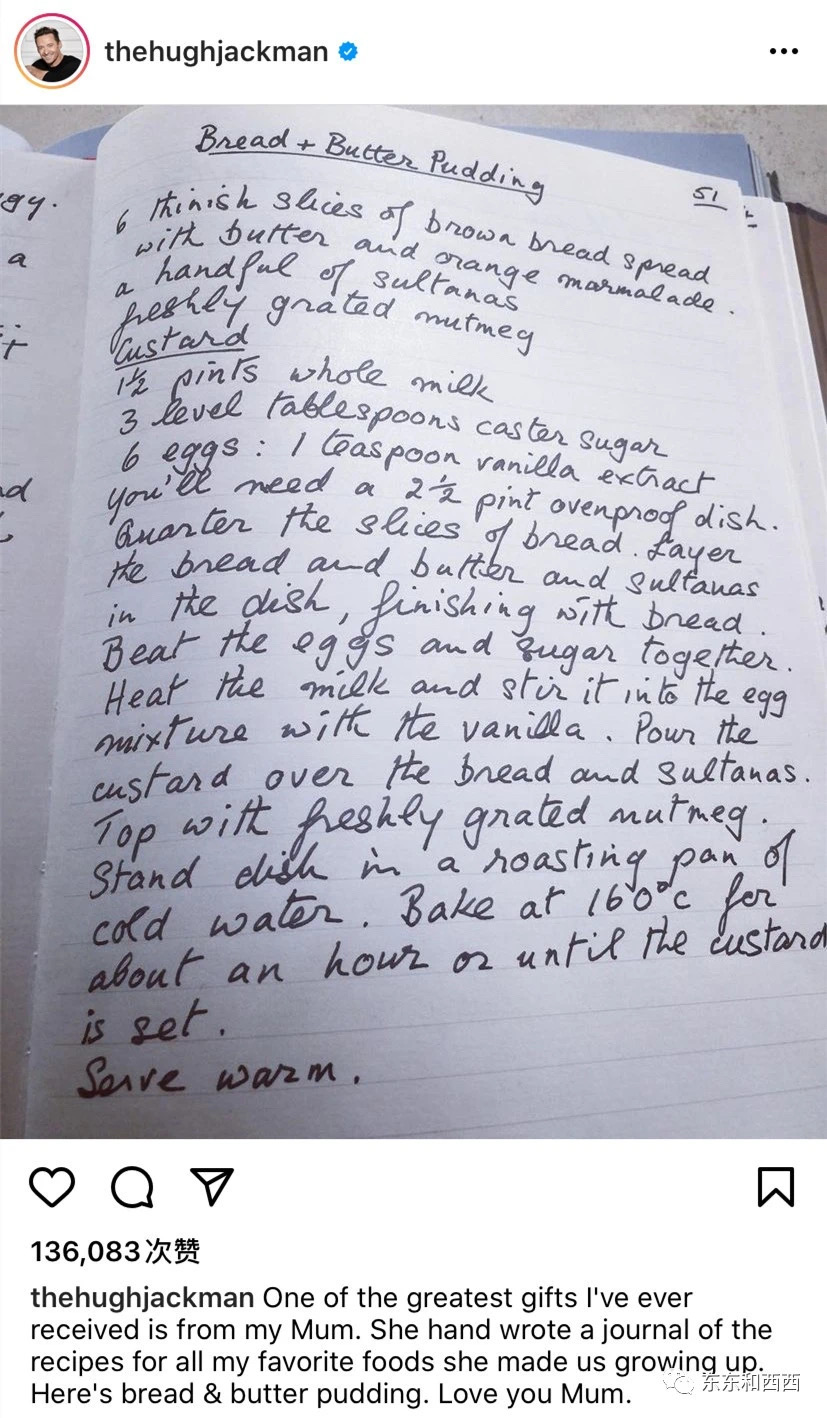 thehughjackman
Bread + Butter Pudding
51
6 thinish slices of brown bread spread
with butter and orange marmalade.
a handful of sultanas
freshly grated nutmeg
Custard
1½ pints whole milk
3 level tablespoons caster sugar
6 eggs : 1 teaspoon vanilla extract
you'll need a 2½ pint ovenproof dish.
Quarter the slices of bread. Layer
the bread and butter and sultanas
in the dish, finishing with bread.
Beat the eggs and sugar together.
Heat the milk and stir it into the egg
mixture with the vanilla. Pour the
custard over the bread and sultanas.
Top with freshly grated nutmeg.
Stand dish in a roasting pan of
cold water. Bake at 160°c for
about an hour or until the custard
is set.
Serve warm.
136,083次赞
thehughjackman One of the greatest gifts I've ever
received is from my Mum. She hand wrote a journal of the
recipes for all my favorite foods she made us growing up.
Here's bread & butter pudding. Love you Mum.
东东和西西